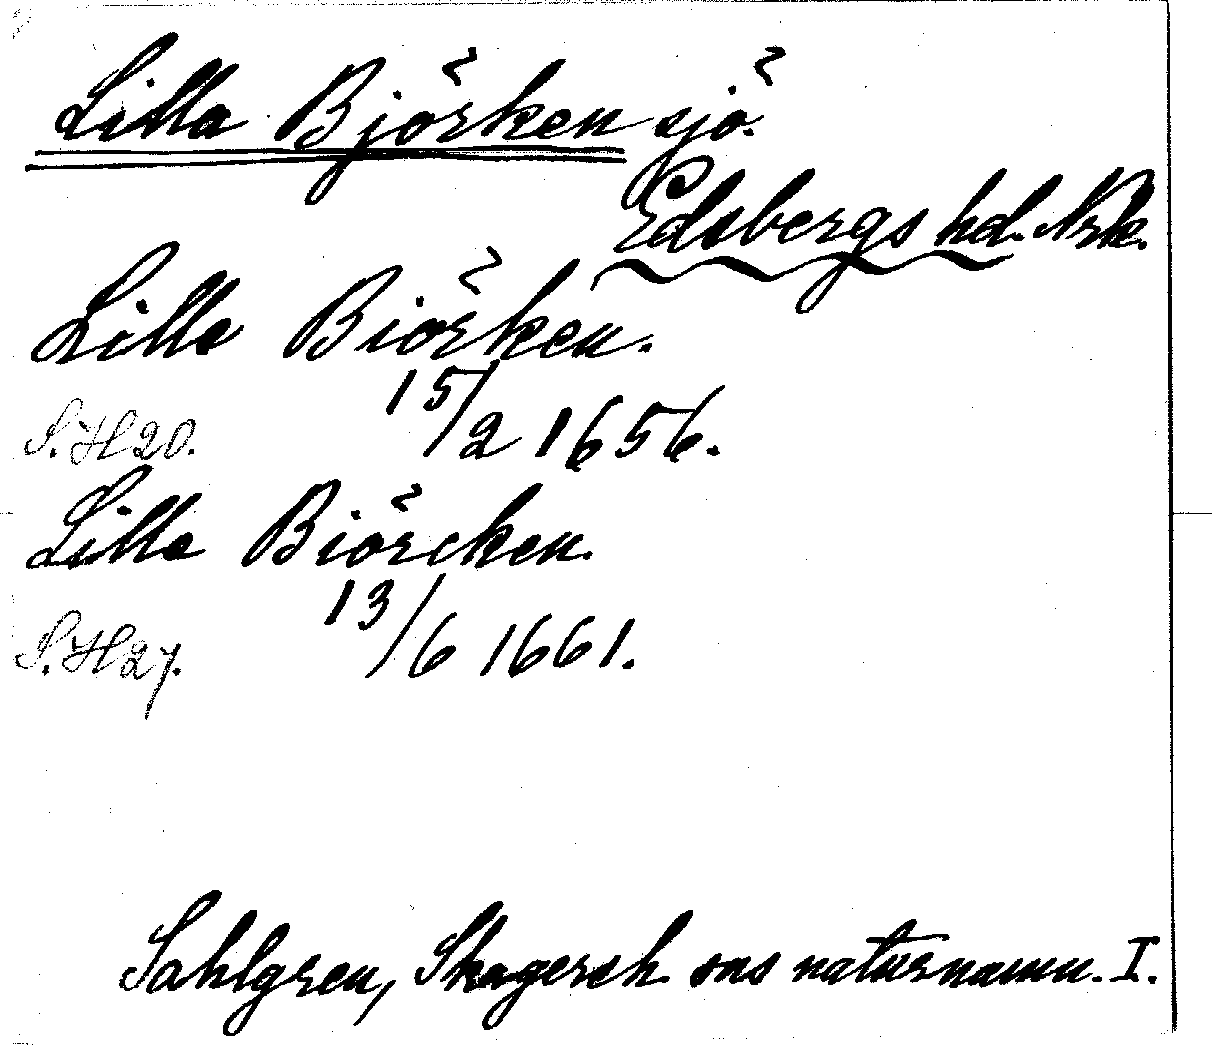 Lilla Björken sjö.
Edsbergs hd. Nrk.
Lilla Biörken.
15/2 1656.
S.H 20.
Lilla Biörcken.
13/6 1661.
S.H 27.
Sahlgren, Skagersh. sns naturnamn. I.